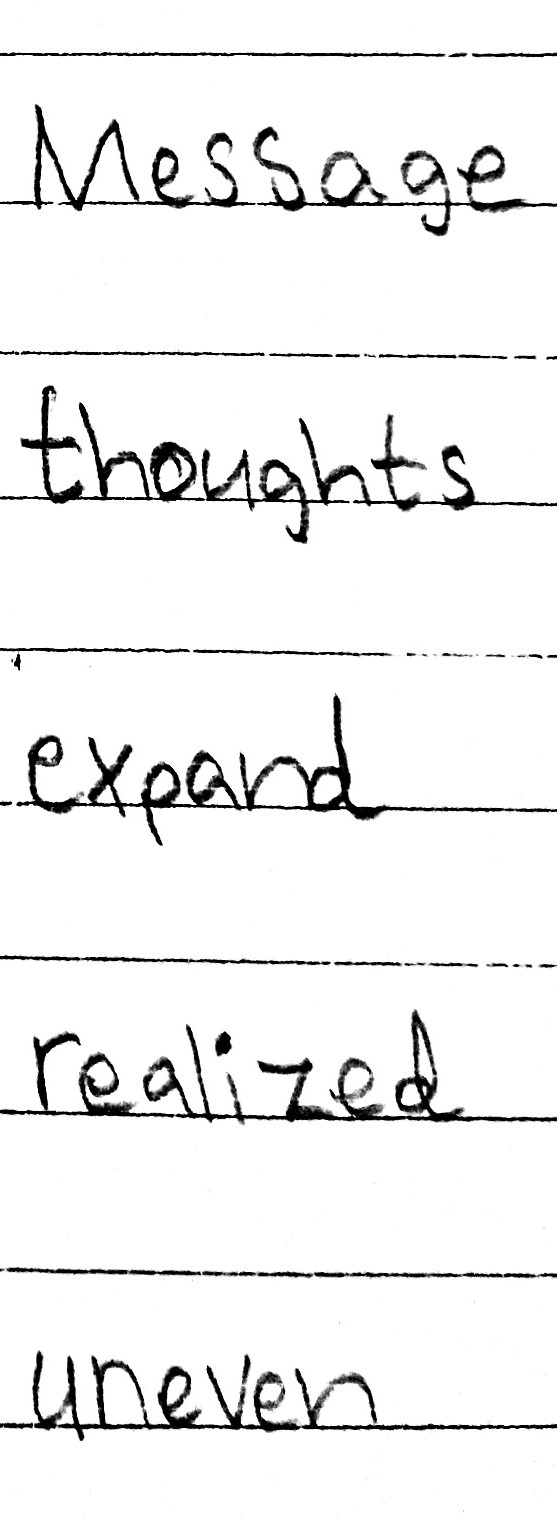 Message
thoughts
expand
realized
uneven